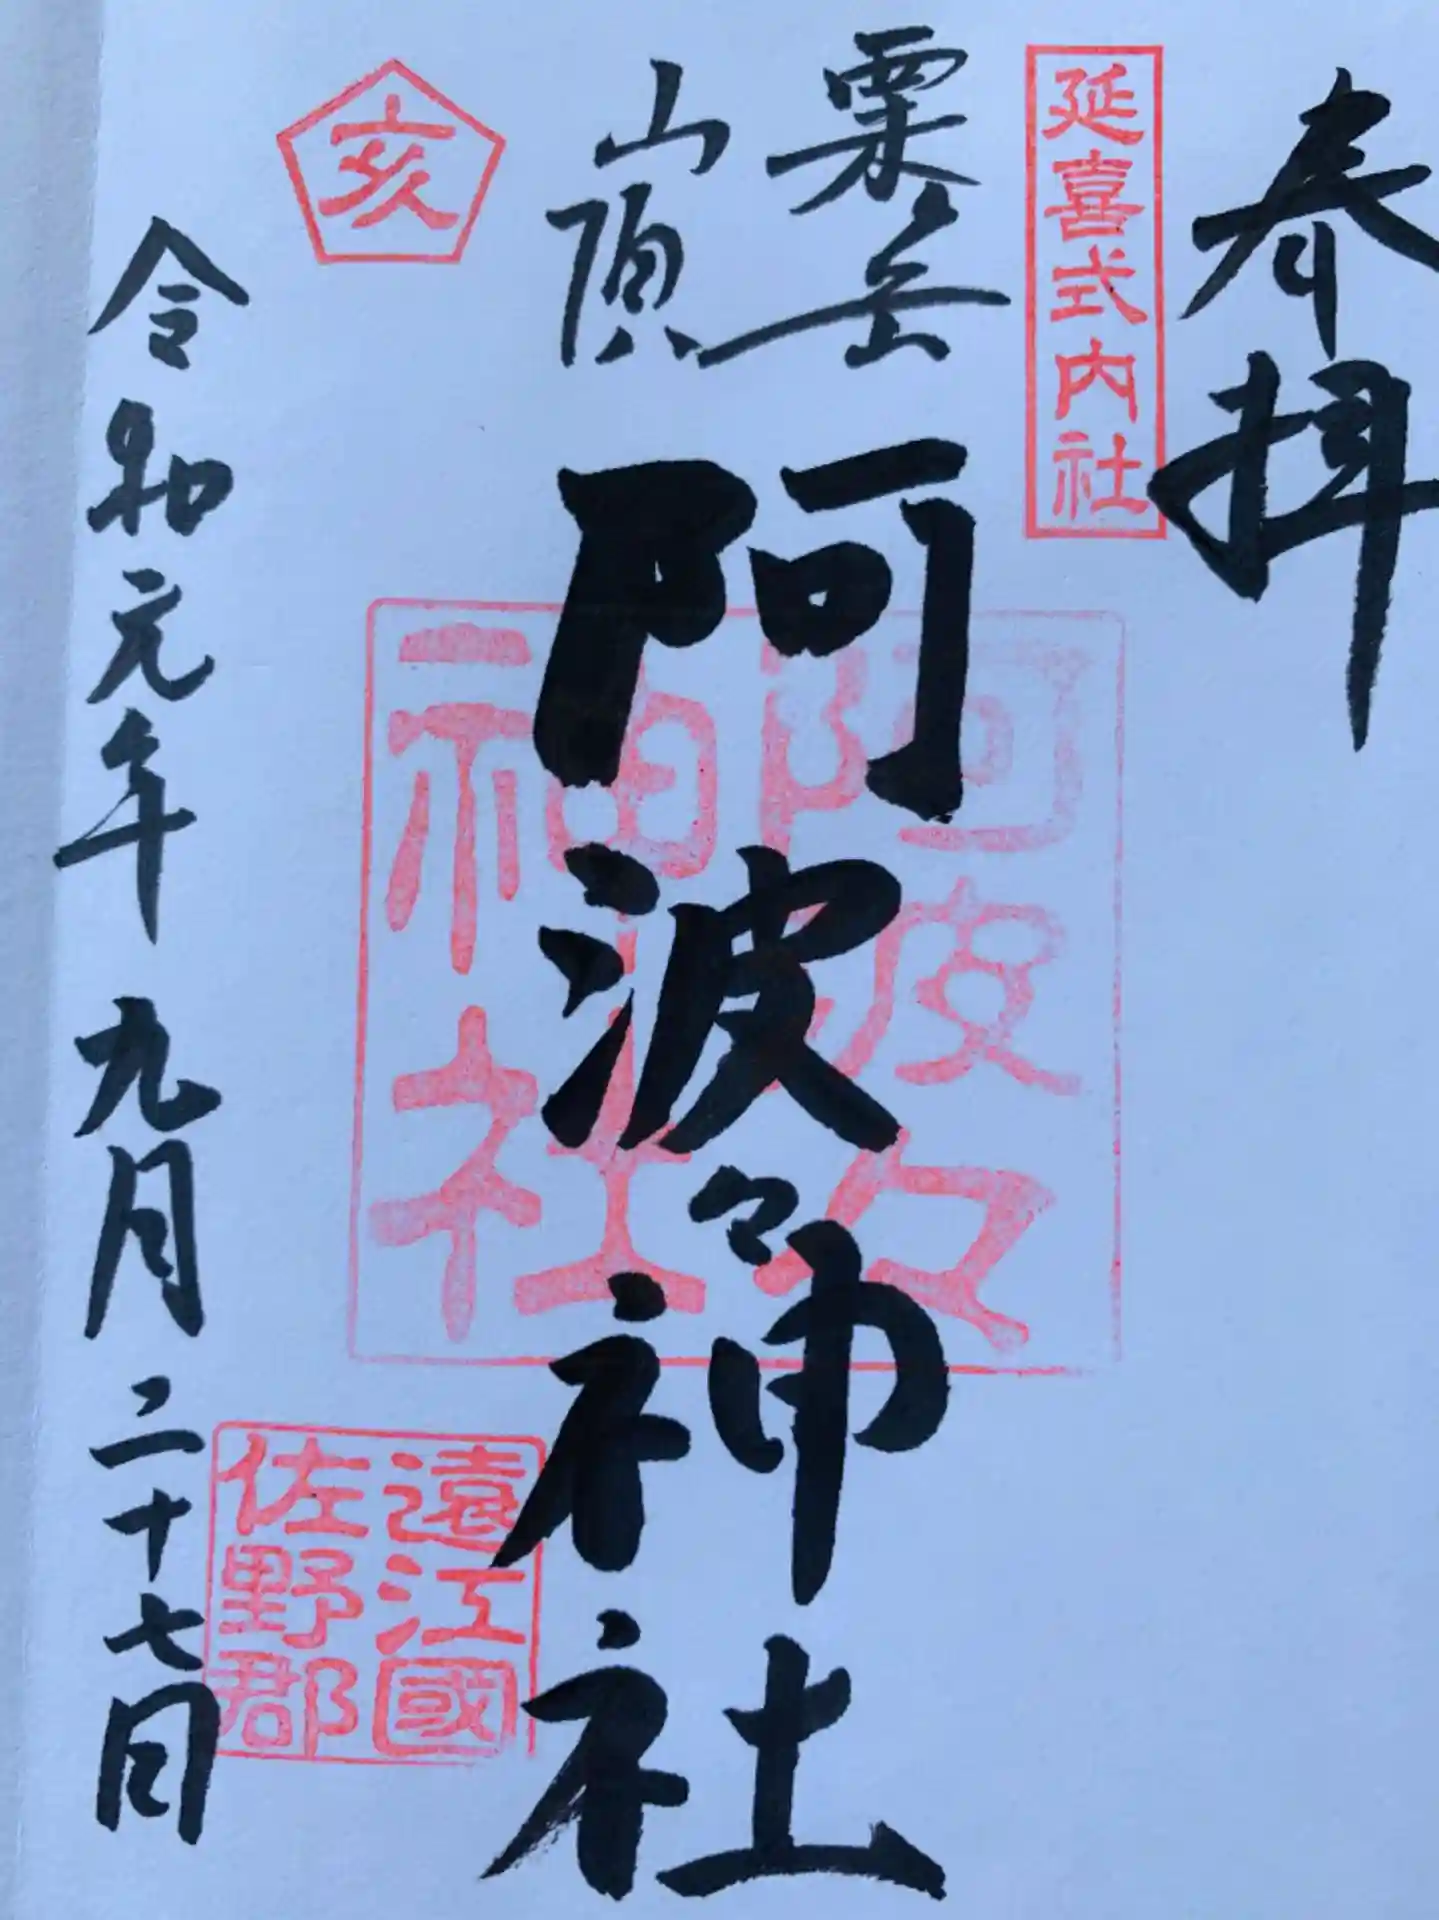 奉拝
延喜式内社
粟岳
山頂
阿波々神社
阿波々
神社
亥
遠江國
佐野郡
令和元年 九月二十七日